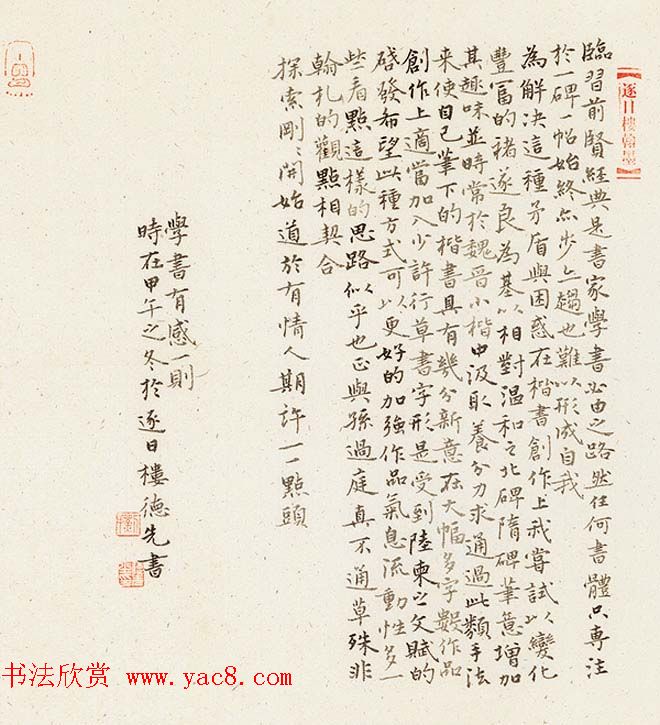 【逐日樓翰墨】
臨習前賢經典是書家學書必由之路然任何書體只專注
於一碑一帖始終亦步亦趨也難以形成自我
為解決這種矛盾與困惑在楷書創作上我嘗試以變化
豐富的褚遂良為基以相對溫和之北碑隋碑筆意增加
其趣味並時常於魏晉小楷中汲取養分力求通過此類手法
來使自己筆下的楷書具有幾分新意在大幅多字數作品
創作上適當加入少許行草書字形是受到陸柬之文賦的
啓發希望此種方式可以更好的加強作品氣息流動性多一
些看點這樣的思路似乎也正與孫過庭真不通草殊非
翰札的觀點相契合
探索剛〻開始道於有情人期許一一點頭
學書有感一則
時在甲午之冬於逐日樓德先書
书法欣赏 www.yac8.com